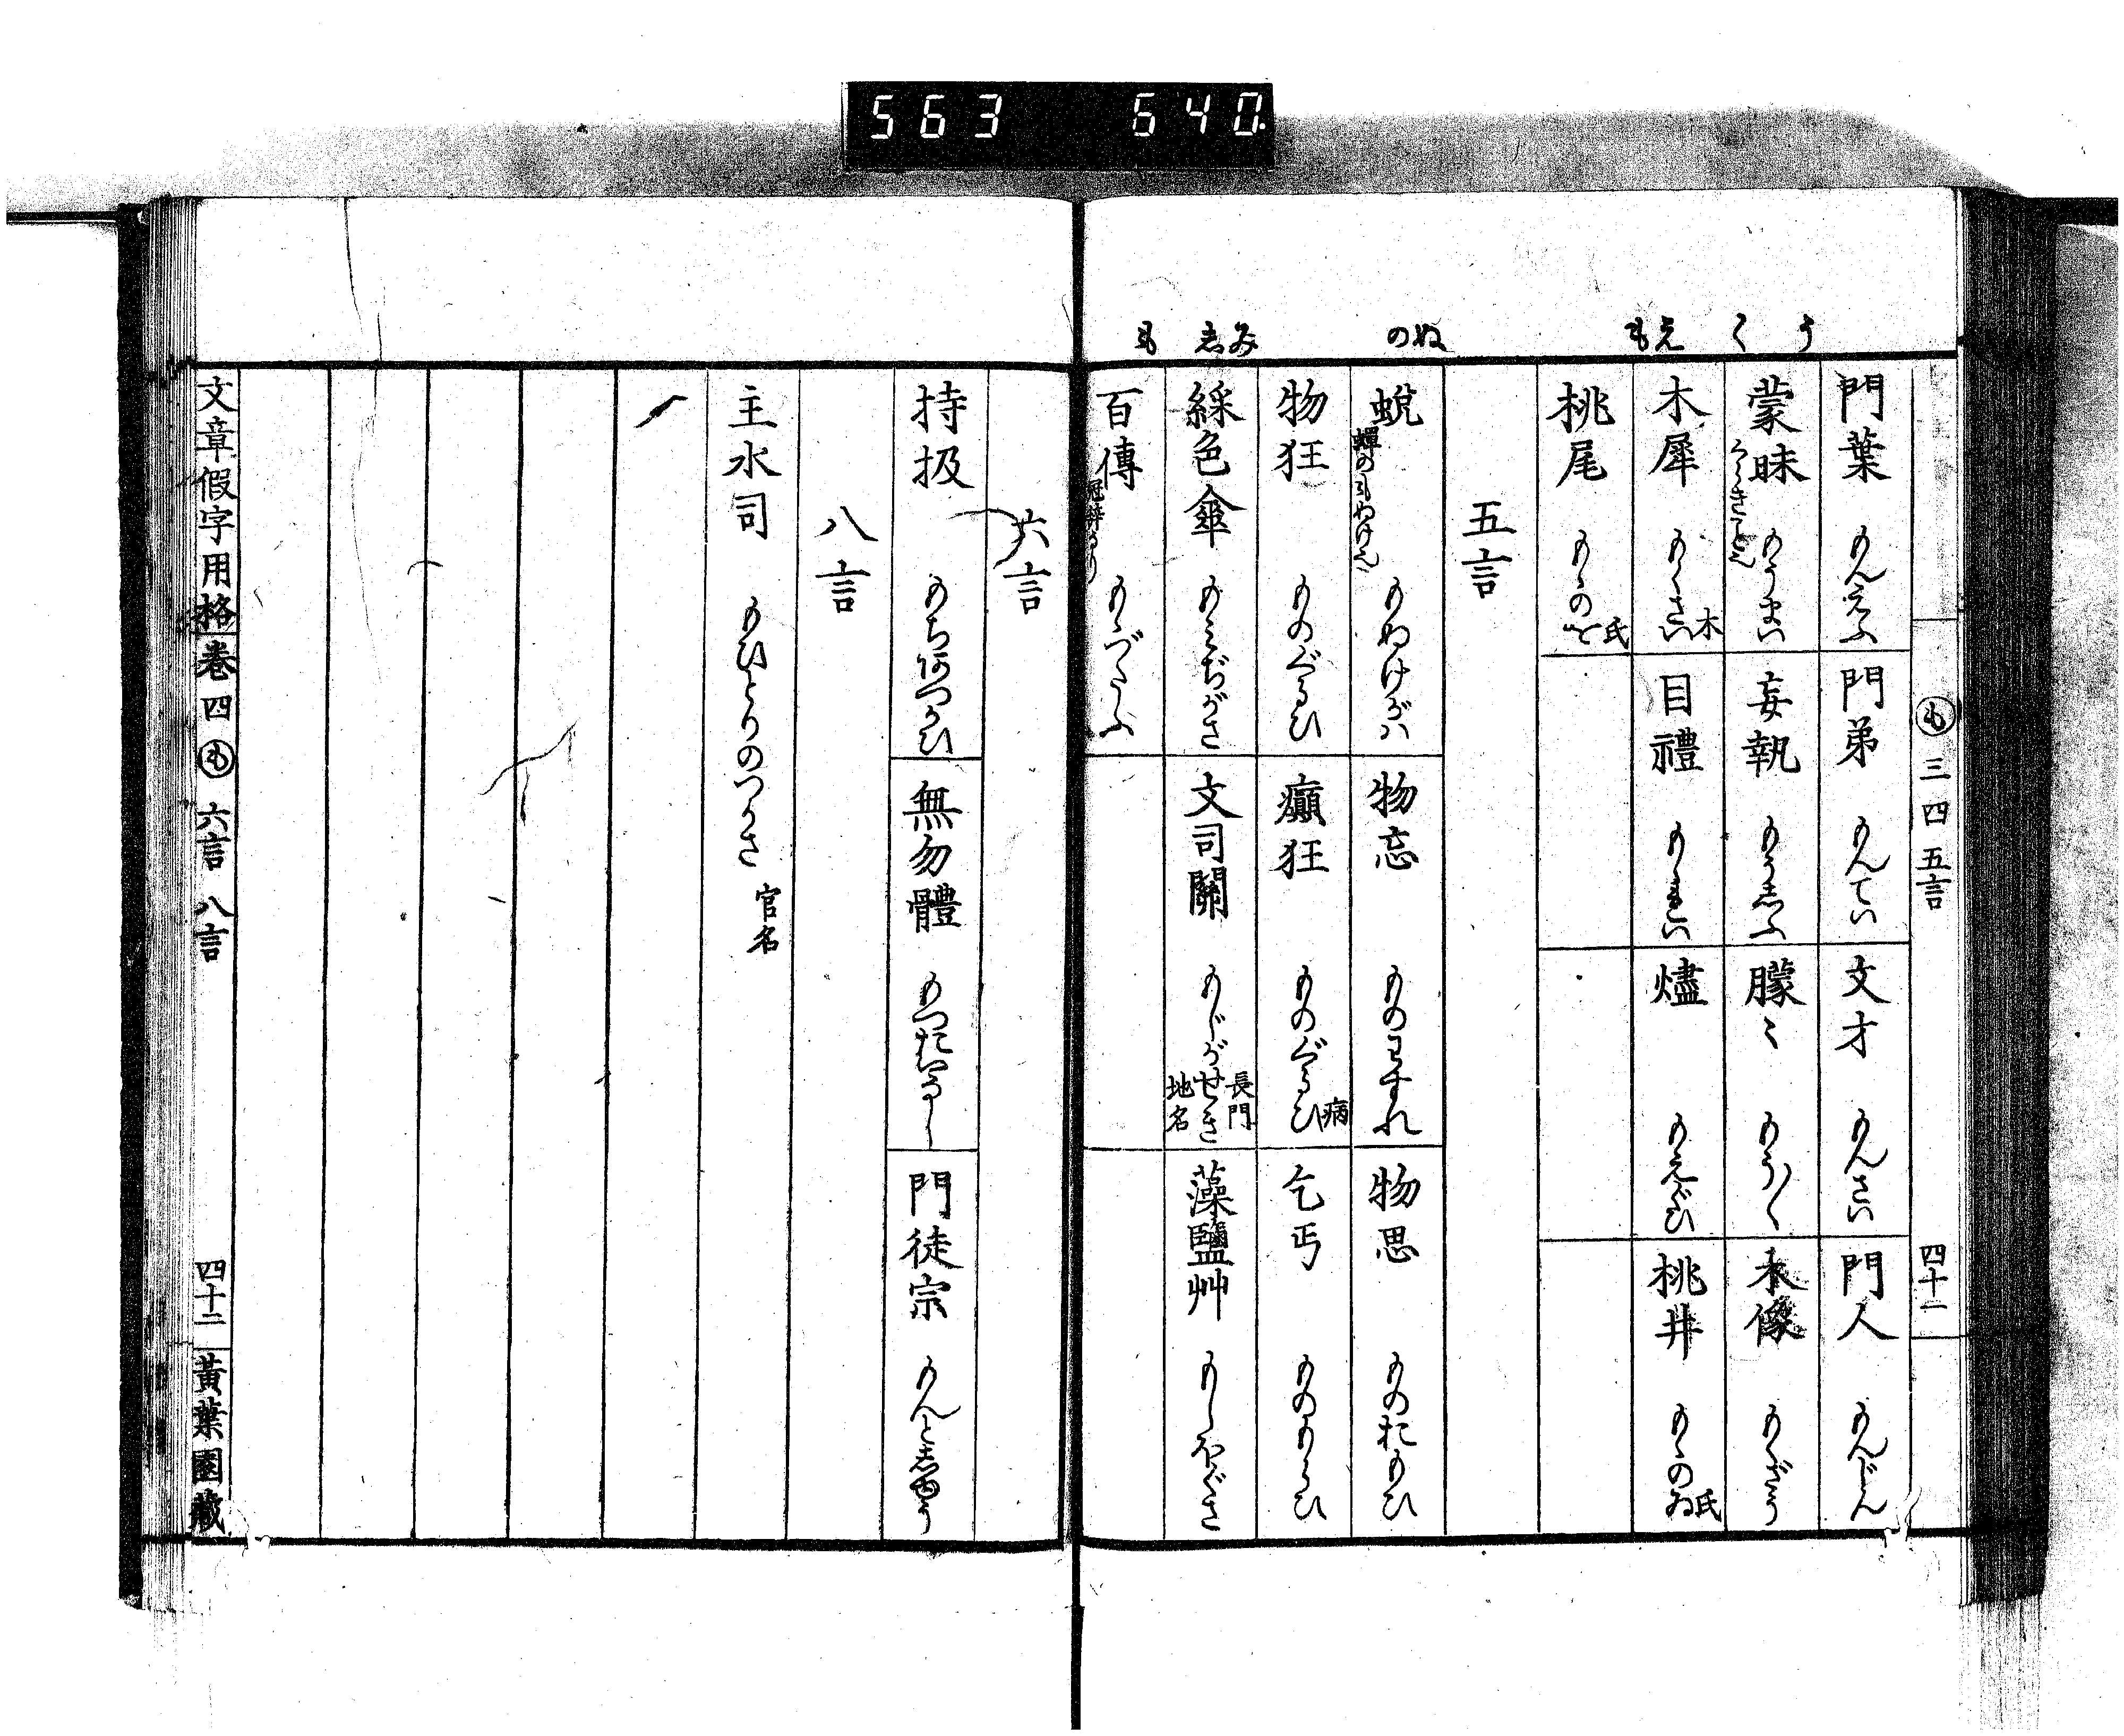 563 640
う く え も ぬ の み し も
も 三 四 五言
四十一
門葉 もんえふ
門弟 もんてい
文才 もんさい
門人 もんじん
蒙昧 もうまい
妄執 もうしふ
朦〻 もう〳〵
木像 もくざう
木犀 もくさい 木
目禮 もくれい
燼 もえぐひ
桃井 もゝのゐ 氏
桃尾 もゝのを 氏
五言
蛻 蟬のもぬけ也 もぬけがハ
物忘 ものわすれ
物思 ものおもひ
物狂 ものぐるひ
癲狂 ものぐるひ 病
乞丐 ものもらひ
綵色傘 もみぢがさ
文司關 もじがせき 長門地名
藻鹽艸 もしほぐさ
百傳 冠辞なり もゝづたふ
六言
持扱 もちあつかひ
無勿體 もつたいなし
門徒宗 もんとしゆう
八言
主水司 もひとりのつかさ 官名
文章假字用格 卷四 も 六言 八言
四十二
黃葉園藏